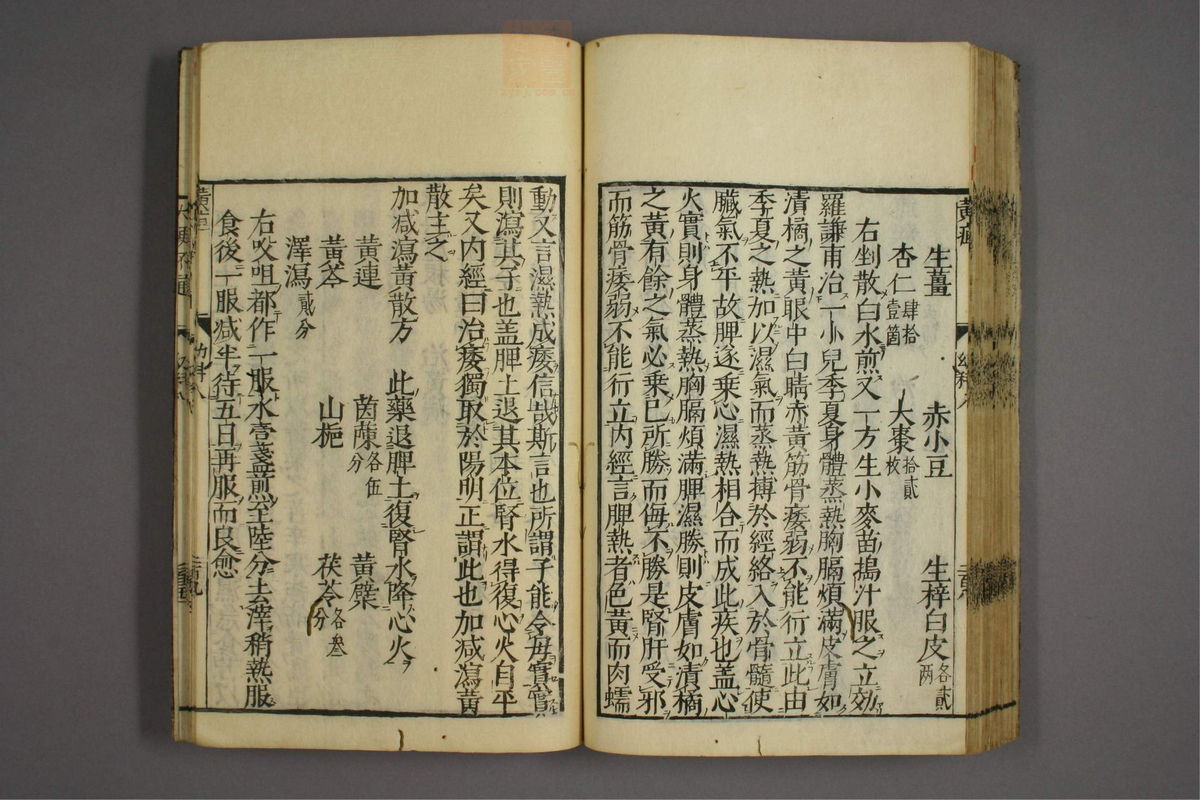 生薑　赤小豆　生梓白皮各貳兩
杏仁肆拾壹箇　大棗拾貳枚
右剉散白水煎又一方生小麥苗搗汁服之立効
羅謙甫治一小兒季夏身體蒸熱胸膈煩滿皮膚如
漬橘之黄眼中白睛赤黄筋骨痿弱不能行立此由
季夏之熱加以濕氣而蒸熱搏於經絡入於骨髓使
臟氣不平故脾逐乗心濕熱相合而成此疾也盖心
火實則身體蒸熱胸膈煩滿脾濕勝則皮膚如漬橘
之黄有餘之氣必乗已所勝而侮不勝是腎肝受邪
而筋骨痿弱不能行立内經言脾熱者色黄而肉蠕
動又言濕熱成痿信哉斯言也所謂子能令母實實
則瀉其子也盖脾土退其本位腎水得復心火自平
矣又内經曰治痿獨取於陽明正謂此也加减瀉黄
散主之
加减瀉黄散方　此藥退脾土復腎水降心火
黄連　茵蔯各伍分　黄檗
黄芩　山梔　茯苓各叁分
澤瀉貳分
右㕮咀都作一服水壹盞煎至陸分去滓稍熱服
食後一服减半待五日再服而良愈